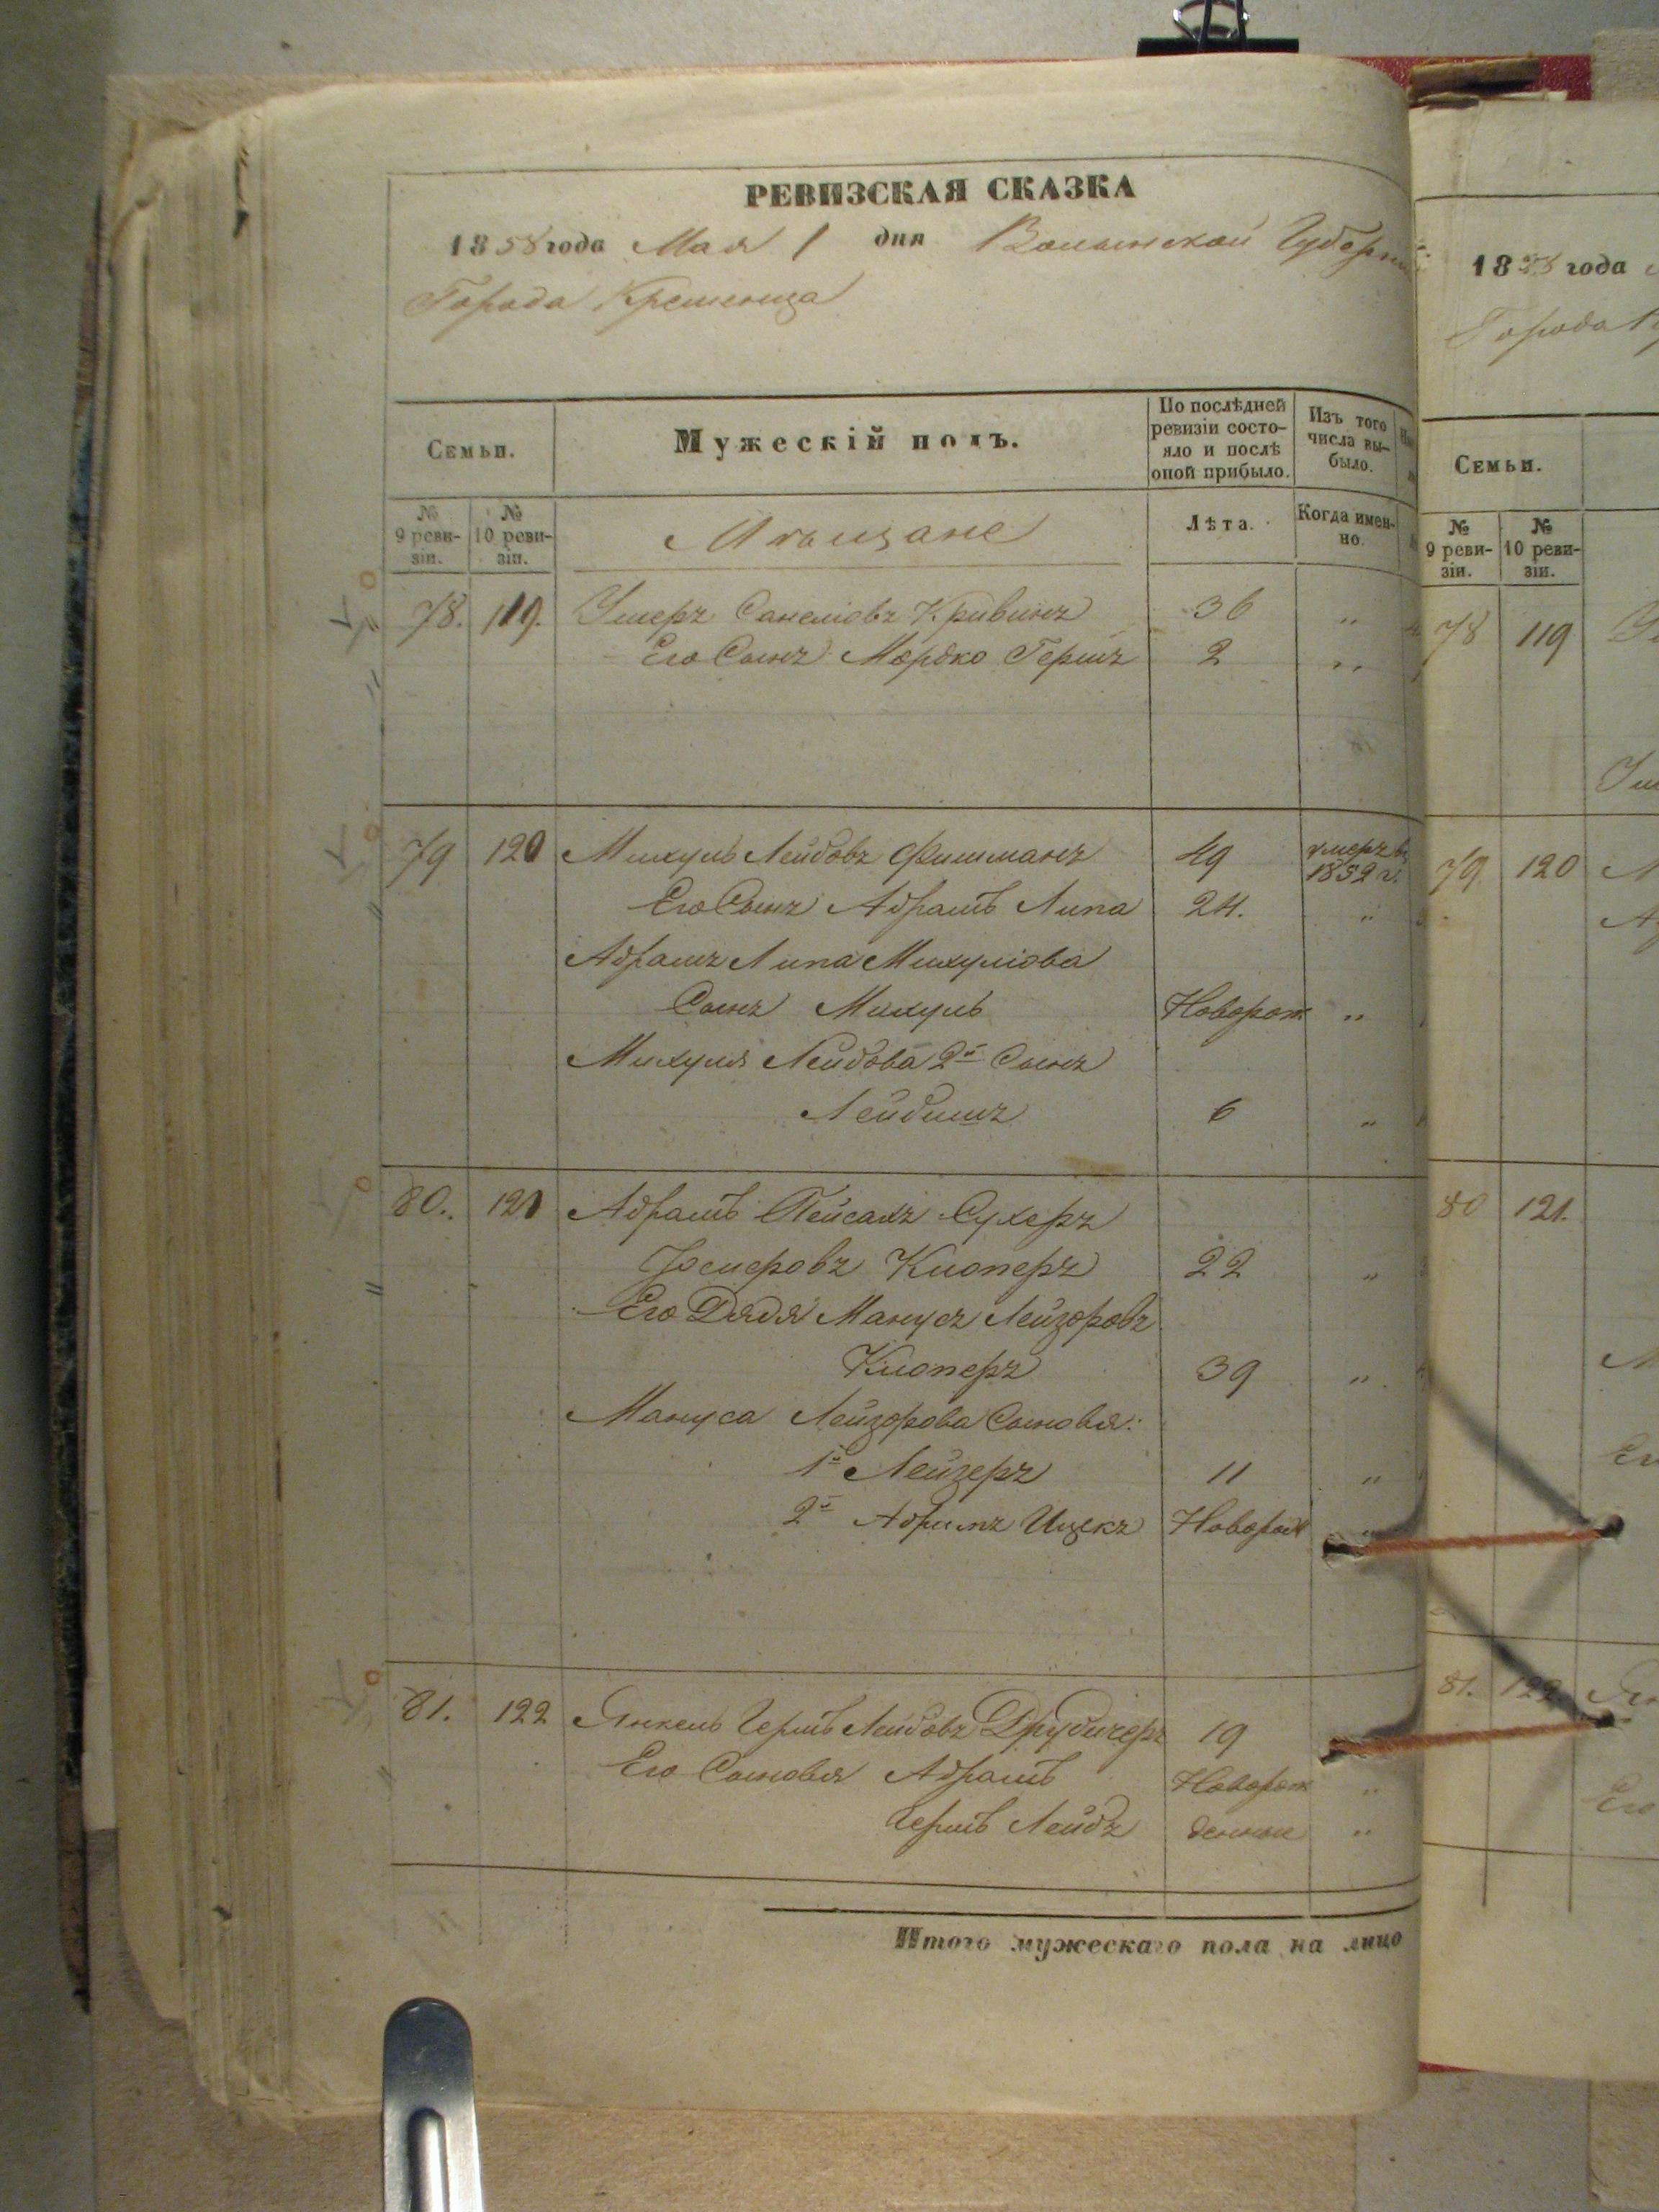 РЕВИЗСКАЯ СКАЗКА
1858 года Мая 1 дня Волынской Губерніи
Города Кременца
Семьи.
Мужескій полъ.
По послѣдней ревизіи состо-
яло и послѣ
оной прибыло.
Изъ того
числа вы-
было.
№
9 реви-
зіи.
№
10 реви-
зіи.
Мѣщане
Лѣта.
Когда имен-
но.
78. 119. Умеръ Санеліовъ Кривинъ 36 "
Его Сынъ Мордко Гершъ 2 "
79 120 Михуль Лейбовъ Фишманъ 49 умеръ въ
1852 г.
Его Сынъ Абрамъ Липа 24. "
Абрамъ Липа Михуліова
Сынъ Михуль Новорож "
Михуля Лейбова 2й Сынъ
Лейбишъ 6 "
80. 121 Абрамъ Пейсахъ Сухеръ
Іосиеровъ Клоперъ 22 "
Его Дядя Манусъ Лейзоровъ
Клоперъ 39 "
Мануса Лейзорова Сыновья:
1й Лейзеръ 11 "
2й Абрамъ Ицекъ Новорож "
81. 122 Янкель Гершъ Лейбовъ 19
Его Сыновья Абрамъ Новорож "
Гершъ Лейбъ денные "
Итого мужескаго пола на лицо
1858 года
Города
Семьи.
№
9 реви-
зіи.
№
10 реви-
зіи.
78 119
79. 120
80 121.
81. 122